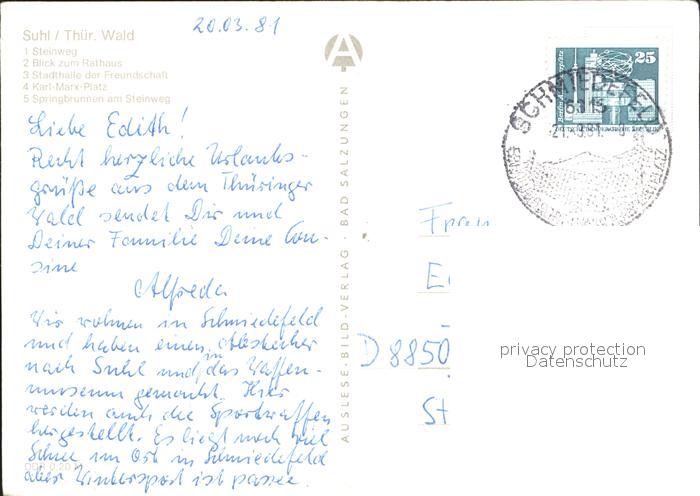 20.03.81
Suhl / Thür. Wald
1 Steinweg
2 Blick zum Rathaus
3 Stadthalle der Freundschaft
4 Karl-Marx-Platz
5 Springbrunnen am Steinweg
Liebe Edith!
Recht herzliche Urlaubs-
grüße aus dem Thüringer
Wald sendet Dir und
Deiner Familie Deine Cou-
sine
Alfreda
Wir wohnen in Schmiedefeld
und haben einen Abstecher
nach Suhl und in das Waffen-
museum gemacht. Hier
werden auch die Sportwaffen
hergestellt. Es liegt noch viel
Schnee im Ort in Schmiedefeld
aber Wintersport ist passee.
DDR 0,20 M
AUSLESE-BILD-VERLAG · BAD SALZUNGEN
A
25
SCHMIEDEFELD
Frau
D 8850
St
privacy protection
Datenschutz